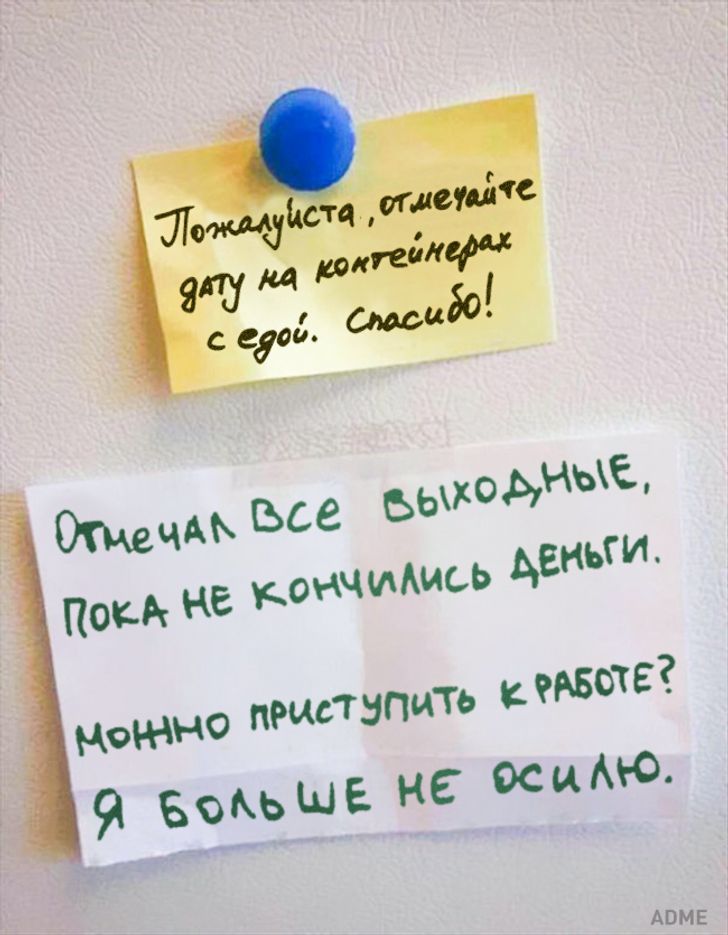 Пожалуйста, отмечайте
дату на контейнерах
с едой. Спасибо!
Отмечал все выходные,
пока не кончились деньги.
можно приступить к работе?
Я больше не осилю.
ADME